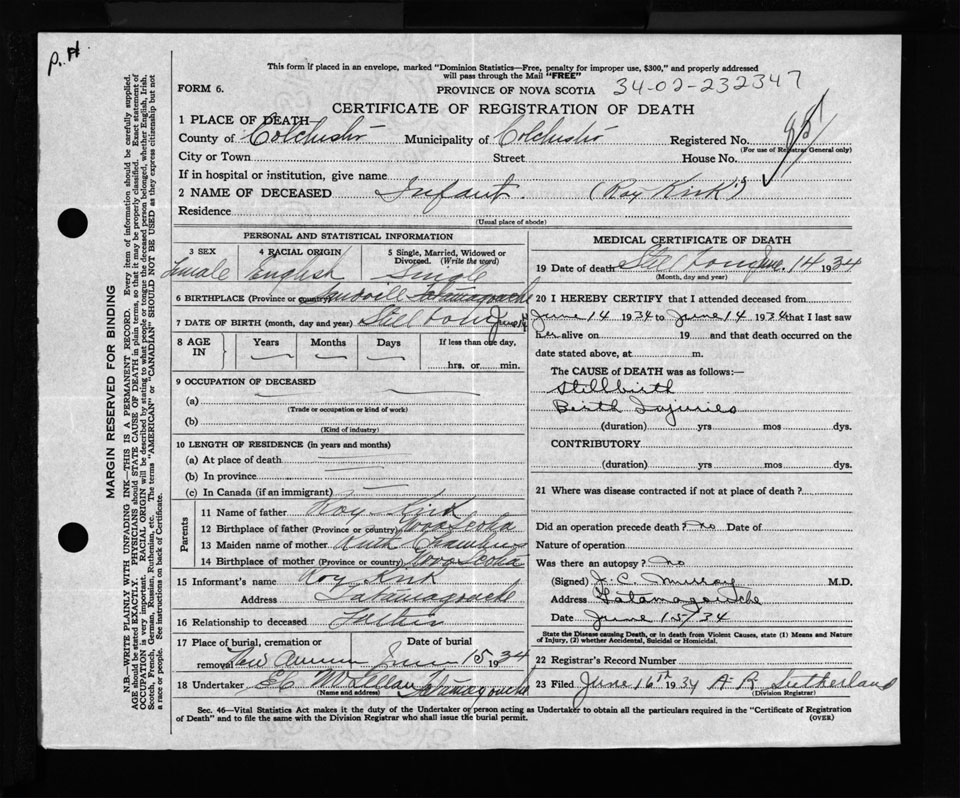 P. H.
This form if placed in an envelope, marked "Dominion Statistics—Free, penalty for improper use, $300," and properly addressed
will pass through the Mail "FREE"
FORM 6. PROVINCE OF NOVA SCOTIA 34-02-232347
CERTIFICATE OF REGISTRATION OF DEATH
1 PLACE OF DEATH
County of Colchester Municipality of Colchester Registered No.
(For use of Registrar General only)
City or Town Street House No.
If in hospital or institution, give name
2 NAME OF DECEASED Infant. (Roy Kirk's)
Residence
(Usual place of abode)
PERSONAL AND STATISTICAL INFORMATION
3 SEX 4 RACIAL ORIGIN 5 Single, Married, Widowed or Divorced. (Write the word)
Female English Single
6 BIRTHPLACE (Province or country) Tatamagouche
7 DATE OF BIRTH (month, day and year) Still born June 14
8 AGE IN Years Months Days If less than one day,
hrs. or min.
9 OCCUPATION OF DECEASED
(a)
(Trade or occupation or kind of work)
(b)
(Kind of industry)
10 LENGTH OF RESIDENCE (in years and months)
(a) At place of death
(b) In province
(c) In Canada (if an immigrant)
Parents
11 Name of father Roy Kirk
12 Birthplace of father (Province or country) Nova Scotia
13 Maiden name of mother Ruth Chambers
14 Birthplace of mother (Province or country) Nova Scotia
15 Informant's name Roy Kirk
Address Tatamagouche
16 Relationship to deceased Father
17 Place of burial, cremation or Date of burial
removal New Annan June 15 1934
18 Undertaker McLellan Tatamagouche
(Name and address)
MEDICAL CERTIFICATE OF DEATH
19 Date of death Still born June 14 1934
(Month, day and year)
20 I HEREBY CERTIFY that I attended deceased from
June 14 1934 to June 14 1934 that I last saw
her alive on 19 and that death occurred on the
date stated above, at m.
The CAUSE of DEATH was as follows:—
Stillbirth
Birth Injuries
(duration) yrs mos dys.
CONTRIBUTORY
(duration) yrs mos dys.
21 Where was disease contracted if not at place of death?
Did an operation precede death? No Date of
Nature of operation
Was there an autopsy? No
(Signed) J. C. Murray M.D.
Address Tatamagouche
Date June 15/34
State the Disease causing Death, or in death from Violent Causes, state (1) Means and Nature
of Injury, (2) whether Accidental, Suicidal or Homicidal.
22 Registrar's Record Number
23 Filed June 16th 1934 A. R. Sutherland
(Division Registrar)
Sec. 46—Vital Statistics Act makes it the duty of the Undertaker or person acting as Undertaker to obtain all the particulars required in the "Certificate of Registration
of Death" and to file the same with the Division Registrar who shall issue the burial permit. (OVER)
MARGIN RESERVED FOR BINDING
N.B.—WRITE PLAINLY WITH UNFADING INK—THIS IS A PERMANENT RECORD. Every item of information should be carefully supplied.
AGE should be stated EXACTLY. PHYSICIANS should STATE CAUSE OF DEATH in plain terms, so that it may be properly classified. Exact statement of
OCCUPATION is very important. RACIAL ORIGIN will be described by stating to what people or race the deceased person belonged, whether English, Irish,
Scotch, French, German, Russian, Ruthenian, etc. The terms "AMERICAN" or "CANADIAN" SHOULD NOT BE USED as they express citizenship but not
a race or people. See instructions on back of Certificate.